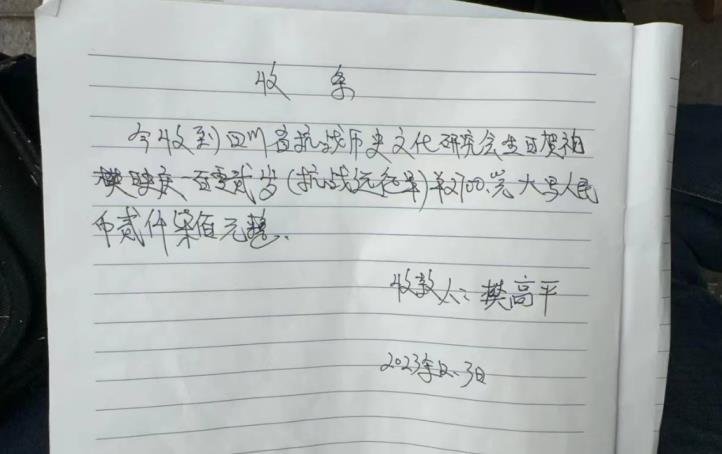 收 条
今收到四川省抗战历史文化研究会生日贺礼
樊映庚一百零贰岁(抗战远征军)¥2700.元 大写人民
币贰仟柒佰元整.
收款人: 樊高平
2023年2.3日